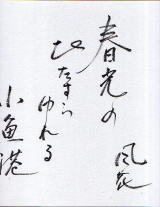 春光の
ひたすらゆれる
小魚港
風花